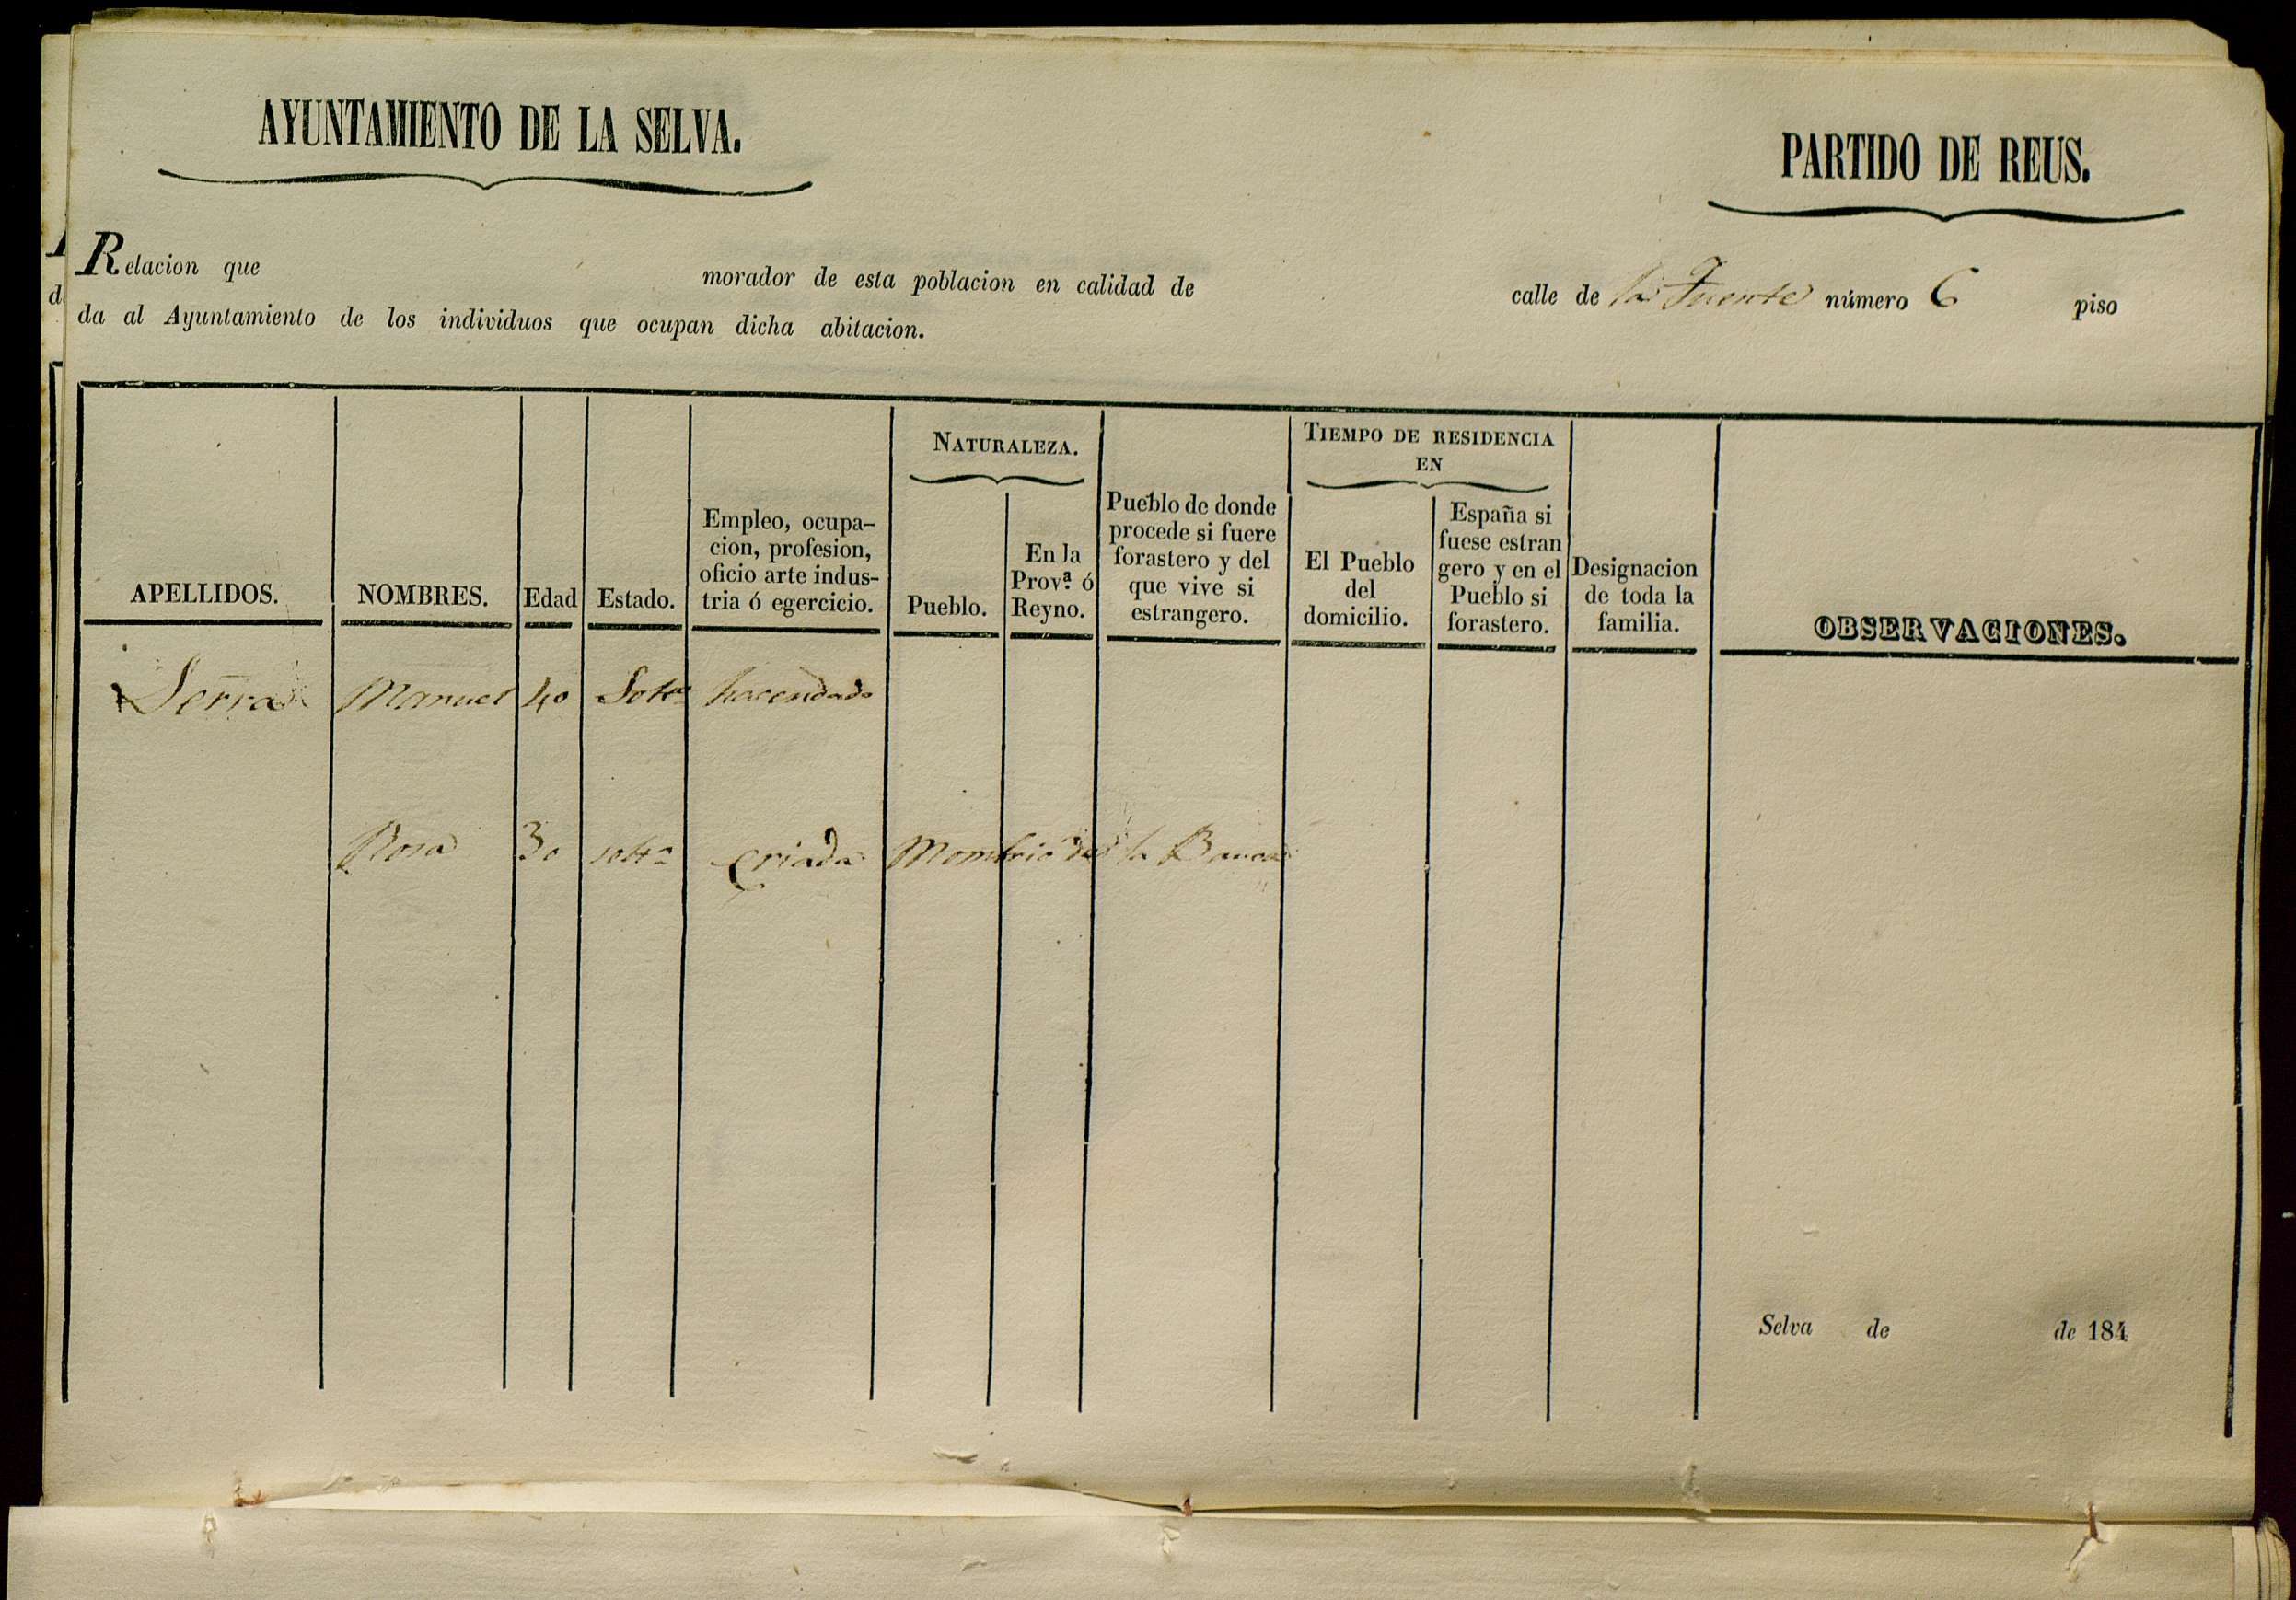 AYUNTAMIENTO DE LA SELVA.
PARTIDO DE REUS.
Relacion que morador de esta poblacion en calidad de calle de la Fuente número 6 piso
da al Ayuntamiento de los individuos que ocupan dicha abitacion.
NATURALEZA.
TIEMPO DE RESIDENCIA
EN
APELLIDOS.
NOMBRES.
Edad
Estado.
Empleo, ocupa-
cion, profesion,
oficio arte indus-
tria ó egercicio.
Pueblo.
En la
Prov.ª ó
Reyno.
Pueblo de donde
procede si fuere
forastero y del
que vive si
estrangero.
El Pueblo
del
domicilio.
España si
fuese estran
gero y en el
Pueblo si
forastero.
Designacion
de toda la
familia.
OBSERVACIONES.
Serra Manuel 40 Solt.º hacendado
Rosa 30 solt.ª criada Mombrió de la
Selva de de 184